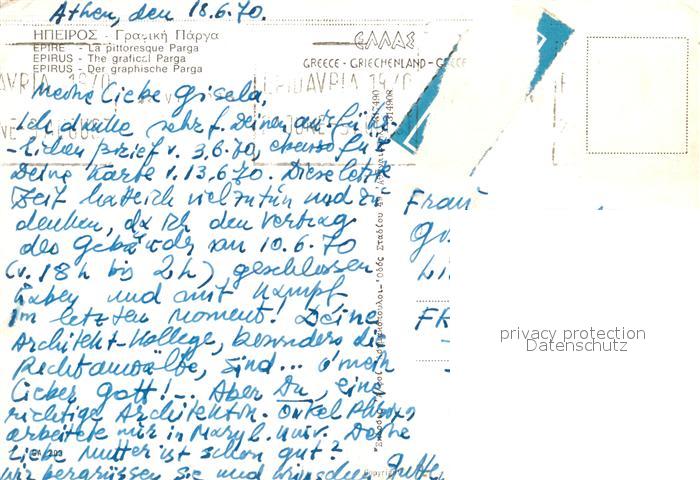 Athen, den 18.6.70.
ΗΠΕΙΡΟΣ - Γραφική Πάργα
EPIRE - La pittoresque Parga
EPIRUS - The grafical Parga
EPIRUS - Der graphische Parga
ΕΛΛΑΣ
GREECE - GRIECHENLAND - GRECE
Meine liebe Gisela,
Ich danke sehr f. Deinen ausführ-
-lichen Brief v. 3.6.70, ebenso für
Deine Karte v. 13.6.70. Diese letzte
Zeit hatte ich viel zu tun und zu
denken, da ich den Vertrag
des Gebäudes am 10.6.70
(v. 18h bis 2h) geschlossen
haben und mit Kampf
im letzten Moment! Deine
Architekt-Kollege, besonders die
Rechtanwälte, sind... o mein
lieber Gott!-. Aber Du, eine
richtige Architektin. Onkel
arbeitete mir in Maryl. Univ. Deine
liebe Mutter ist schon gut?
Wir begrüssen sie und wünschen
Frau
FR
privacy protection
Datenschutz